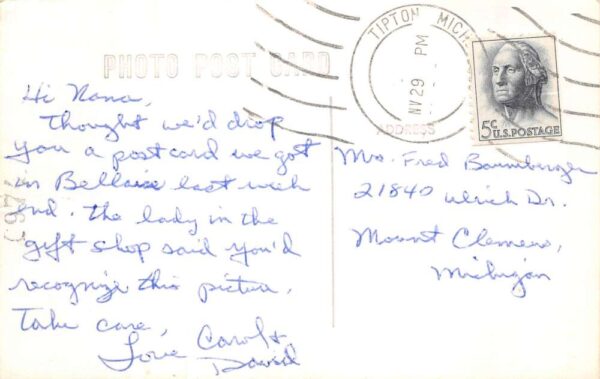 PHOTO POST CARD
Hi Nana,
Thought we'd drop
you a postcard we got
in Bellaire last week
end. The lady in the
gift shop said you'd
recognize this picture.
Take care,
Love Carol &
David
TIPTON MICH
NV 29 PM
5c U.S. POSTAGE
ADDRESS
Mrs. Fred Baumberger
21840 Ulrich Dr.
Mount Clemens,
Michigan